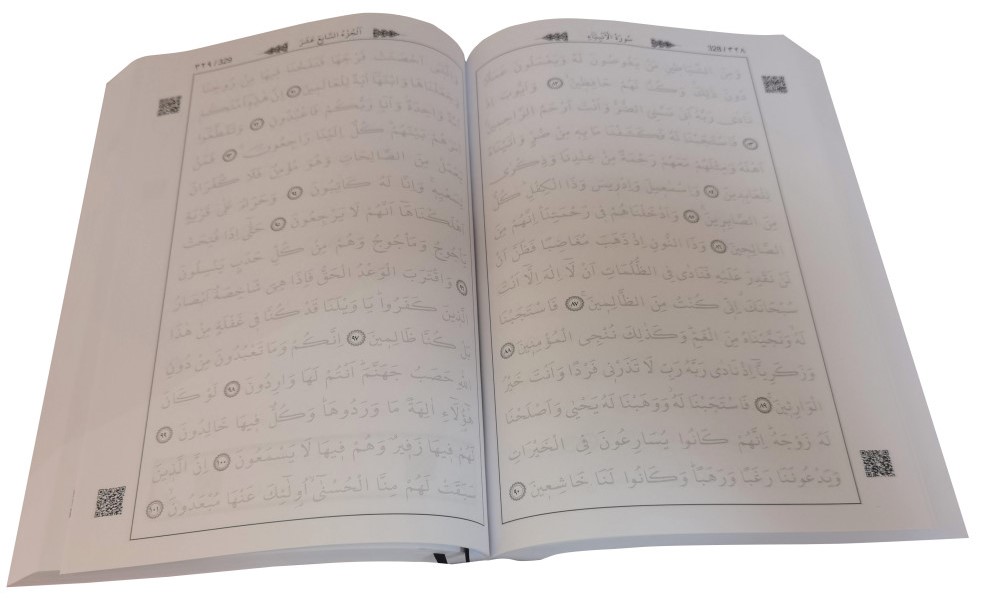 ٣٢٨ / 328 سُورَةُ الْاَنْبِيَاءِ
وَمِنَ الشَّيَاطِينِ مَنْ يَغُوصُونَ لَهُ وَيَعْمَلُونَ عَمَلًا
دُونَ ذٰلِكَ وَكُنَّا لَهُمْ حَافِظِينَ ﴿٨٢﴾ وَاَيُّوبَ اِذْ
نَادٰى رَبَّهُ اَنِّى مَسَّنِىَ الضُّرُّ وَاَنْتَ اَرْحَمُ الرَّاحِمِينَ
﴿٨٣﴾ فَاسْتَجَبْنَا لَهُ فَكَشَفْنَا مَا بِهِ مِنْ ضُرٍّ وَاٰتَيْنَاهُ
اَهْلَهُ وَمِثْلَهُمْ مَعَهُمْ رَحْمَةً مِنْ عِنْدِنَا وَذِكْرٰى
لِلْعَابِدِينَ ﴿٨٤﴾ وَاِسْمٰعِيلَ وَاِدْرِيسَ وَذَا الْكِفْلِ كُلٌّ
مِنَ الصَّابِرِينَ ﴿٨٥﴾ وَاَدْخَلْنَاهُمْ فِى رَحْمَتِنَا اِنَّهُمْ مِنَ
الصَّالِحِينَ ﴿٨٦﴾ وَذَا النُّونِ اِذْ ذَهَبَ مُغَاضِبًا فَظَنَّ اَنْ
لَنْ نَقْدِرَ عَلَيْهِ فَنَادٰى فِى الظُّلُمَاتِ اَنْ لَٓا اِلٰهَ اِلَّٓا اَنْتَ
سُبْحَانَكَ اِنِّى كُنْتُ مِنَ الظَّالِمِينَ ﴿٨٧﴾ فَاسْتَجَبْنَا
لَهُ وَنَجَّيْنَاهُ مِنَ الْغَمِّ وَكَذٰلِكَ نُنْجِى الْمُؤْمِنِينَ ﴿٨٨﴾
وَزَكَرِيَّٓا اِذْ نَادٰى رَبَّهُ رَبِّ لَا تَذَرْنِى فَرْدًا وَاَنْتَ خَيْرُ
الْوَارِثِينَ ﴿٨٩﴾ فَاسْتَجَبْنَا لَهُ وَوَهَبْنَا لَهُ يَحْيٰى وَاَصْلَحْنَا
لَهُ زَوْجَهُ اِنَّهُمْ كَانُوا يُسَارِعُونَ فِى الْخَيْرَاتِ
وَيَدْعُونَنَا رَغَبًا وَرَهَبًا وَكَانُوا لَنَا خَاشِعِينَ ﴿٩٠﴾
اَلْجُزْءُ السَّابِعَ عَشَرَ ٣٢٩ / 329
وَالَّتِٓى اَحْصَنَتْ فَرْجَهَا فَنَفَخْنَا فِيهَا مِنْ رُوحِنَا
وَجَعَلْنَاهَا وَابْنَهَٓا اٰيَةً لِلْعَالَمِينَ ﴿٩١﴾ اِنَّ هٰذِهِٓ اُمَّتُكُمْ
اُمَّةً وَاحِدَةً وَاَنَا رَبُّكُمْ فَاعْبُدُونِ ﴿٩٢﴾ وَتَقَطَّعُٓوا
اَمْرَهُمْ بَيْنَهُمْ كُلٌّ اِلَيْنَا رَاجِعُونَ ﴿٩٣﴾ فَمَنْ
يَعْمَلْ مِنَ الصَّالِحَاتِ وَهُوَ مُؤْمِنٌ فَلَا كُفْرَانَ
لِسَعْيِهِ وَاِنَّا لَهُ كَاتِبُونَ ﴿٩٤﴾ وَحَرَامٌ عَلٰى قَرْيَةٍ
اَهْلَكْنَاهَٓا اَنَّهُمْ لَا يَرْجِعُونَ ﴿٩٥﴾ حَتّٰٓى اِذَا فُتِحَتْ
يَأْجُوجُ وَمَأْجُوجُ وَهُمْ مِنْ كُلِّ حَدَبٍ يَنْسِلُونَ
﴿٩٦﴾ وَاقْتَرَبَ الْوَعْدُ الْحَقُّ فَاِذَا هِىَ شَاخِصَةٌ اَبْصَارُ
الَّذِينَ كَفَرُوا يَا وَيْلَنَا قَدْ كُنَّا فِى غَفْلَةٍ مِنْ هٰذَا
بَلْ كُنَّا ظَالِمِينَ ﴿٩٧﴾ اِنَّكُمْ وَمَا تَعْبُدُونَ مِنْ دُونِ
اللّٰهِ حَصَبُ جَهَنَّمَ اَنْتُمْ لَهَا وَارِدُونَ ﴿٩٨﴾ لَوْ كَانَ
هٰٓؤُ۬لَٓاءِ اٰلِهَةً مَا وَرَدُوهَا وَكُلٌّ فِيهَا خَالِدُونَ ﴿٩٩﴾
لَهُمْ فِيهَا زَفِيرٌ وَهُمْ فِيهَا لَا يَسْمَعُونَ ﴿١٠٠﴾ اِنَّ الَّذِينَ
سَبَقَتْ لَهُمْ مِنَّا الْحُسْنٰٓى اُو۬لٰٓئِكَ عَنْهَا مُبْعَدُونَ ﴿١٠١﴾